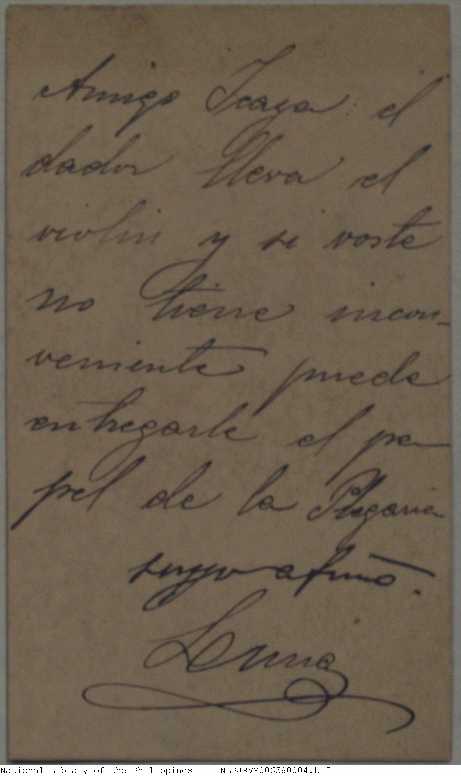 Amigo Icaza: el
dador lleva el
violin y si voste
no tiene incon-
veniente puede
entregarle el pa-
pel de la Plegaria
suyo afmo.
Luna
National Library of the Philippines